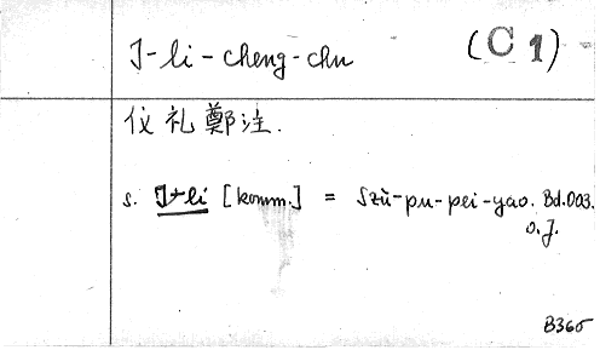 I-li-cheng-chu (C 1)
仪礼鄭注.
s. I-li [komm.] = Szŭ-pu-pei-yao. Bd.003.
o.J.
B365